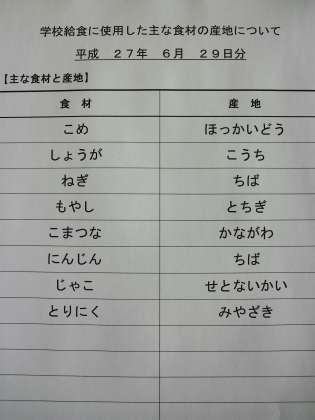 学校給食に使用した主な食材の産地について
平成 ２７年 ６月 ２９日分
【主な食材と産地】
食 材 産 地
こめ ほっかいどう
しょうが こうち
ねぎ ちば
もやし とちぎ
こまつな かながわ
にんじん ちば
じゃこ せとないかい
とりにく みやざき